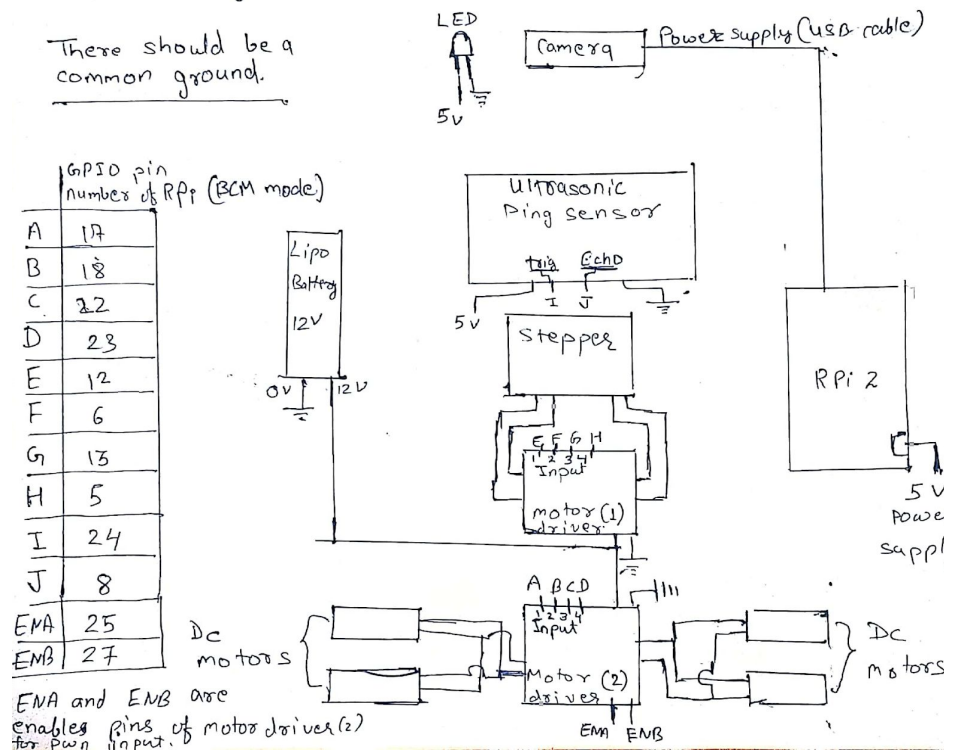 There should be a
common ground.
LED
5V
Camera
Power supply (USB cable)
GPIO pin
number of RPi (BCM mode)
A 17
B 18
C 22
D 23
E 12
F 6
G 13
H 5
I 24
J 8
ENA 25
ENB 27
ENA and ENB are
enables pins of motor driver(2)
for pwm input.
Lipo
Battery
12V
0V
12V
Ultrasonic
Ping sensor
trig Echo
I J
5V
Stepper
E F G H
1 2 3 4
Input
motor (1)
driver
A B C D
1 2 3 4
Input
Motor (2)
driver
ENA ENB
Dc
motors
DC
Motors
RPi 2
5V
Powe
suppl